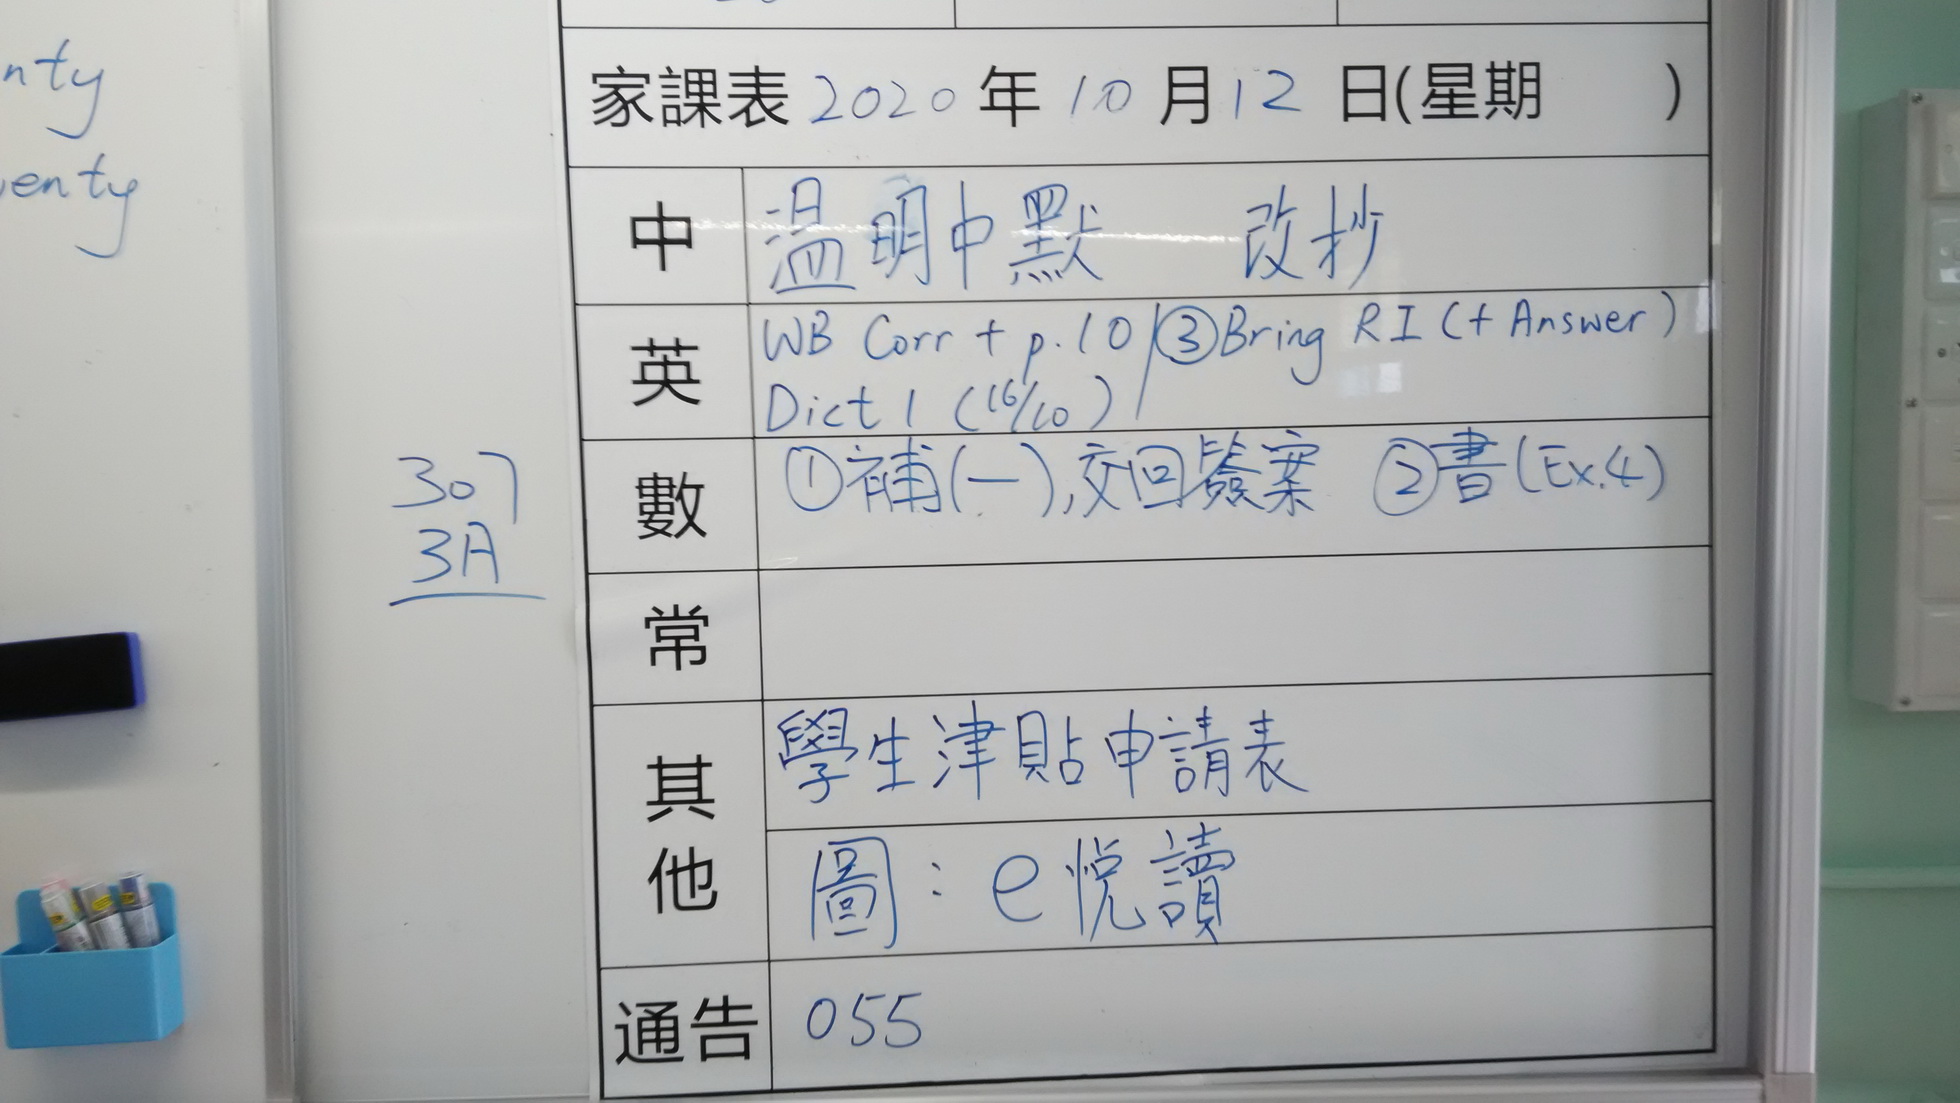 nty
enty
307
3A
家課表 2020 年 10 月 12 日(星期 )
中 溫明中默 改抄
英 WB Corr + p.10 / ③Bring RI (+ Answer)
Dict 1 (16/10)
數 ①補(一),交回簽案 ②書(Ex.4)
常
其他 學生津貼申請表
圖:e悅讀
通告 055